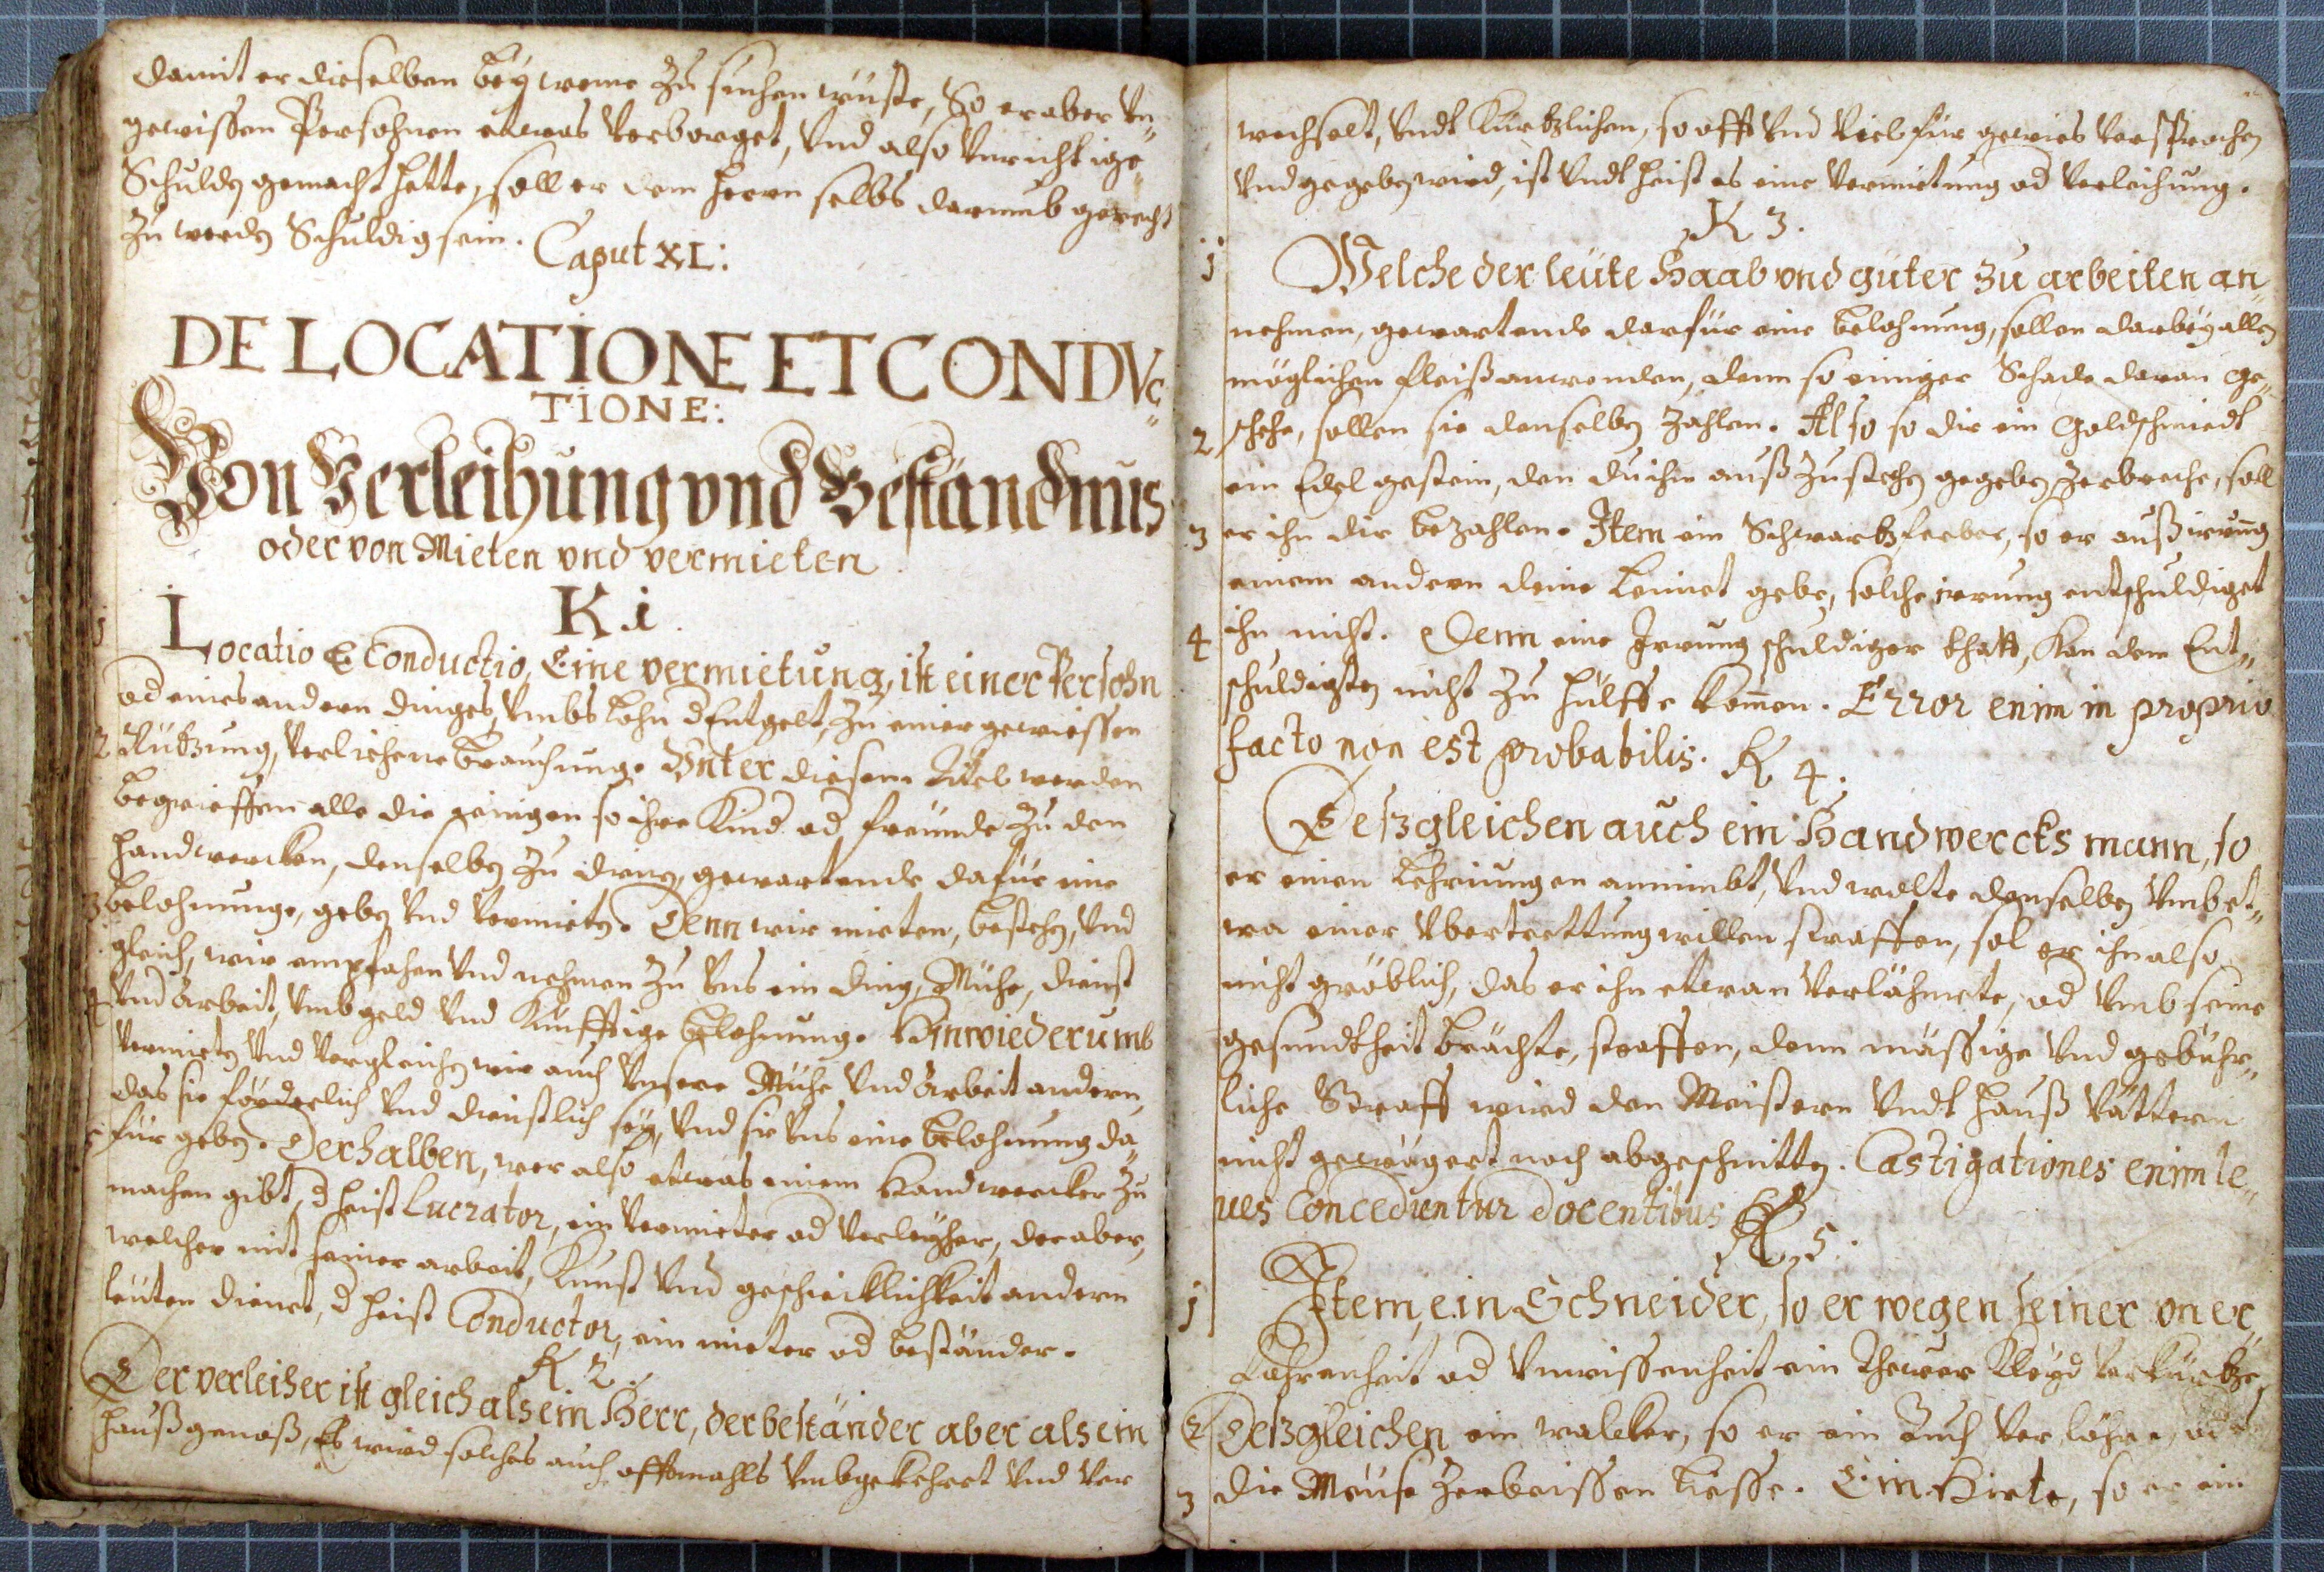 damit er dieselben beÿ weme zu suchen wüste, So er aber Vn„
gewissen Persohnen etwas Verborget, Vnd also Vnrichtige
Schulden gemacht hette, soll er dem Herrn selbs darumb gerecht
zu werden Schuldig sein.
Caput XL:
DE LOCATIONE ET CONDVC„
TIONE:
Von Verleihung vnd Beständnüs
oder von Mieten vnd vermieten
K i.
1 Locatio & Conductio, Eine vermietung, ist einer Persohn
od eines andern dinges, Vmbs Lohn d Entgelt, zu einer gewiessen
2 Nützung, Verliehene brauchung. Vnter diesem Titel werden
begrieffen alle die jenigen so ihre Kind od freunde zu den
Handwercken, denselben zu dienen, gewartende dafür eine
3 belohnunge, geben Vnd Vermieten. Denn wir mieten, bestehen, Vnd
gleich, wir empfahen Vnd nehmen zu Vns ein ding, Mühe, dienst
4 Vnd Arbeit, Vmb geld Vnd Künfftige belohnung. Hinwiederumb
Vermieten Vnd Vergleichen wir auch Vnsere Mühe Vnd Arbeit andern,
das sie förderlich Vnd dienstlich seÿ, Vnd sie Vns eine belohnung da„
5 für geben. Derhalben, wer also etwas einem Handwercker zu
machen gibt, d heist Lucrator, ein Vermieter od Verleyher, der aber,
welcher mit seiner arbeit, Kunst Vnd geschicklichkeit andern
leuten dienet, d heist Conductor, ein mieter od beständer.
K 2.
Der verleiher ist gleich als ein Herr, der beständer aber als ein
Haußgenoß, Es wird solches auch offtmahls Vmbgekehret Vnd Ver
wechselt, Vndt Kürtzlichen, so offt Vnd Viel für gewies Versprochen
Vnd gegeben wird, ist Vndt heist es eine Vermietung od Verleihung.
K 3.
1 Welche der leüte Haab vnd güter zu arbeiten an„
nehmen, gewartende darfür eine belohnung, sollen darbeÿ allen
möglichen fleiß anwenden, denn so einiger Schade daran ge„
2 schehe, sollen sie denselben zahlen. Also so dir ein Goldschmiedt
ein Edel gestein, den du ihm auß zu stechen gegeben zerbreche, soll
3 er ihn dir bezahlen. Item ein Schwartzferber, so er auß irrung
einem andern deine Leinet gebe, solche irrung entschuldiget
4 ihn nicht. Denn eine Irrung schuldiger thatt, Kan dem Ent„
schuldigten nicht zu hülffe Kommen. Error enim in proprio
facto non est probabilis.
K 4.
Deßgleichen auch ein Handwercks mann, so
er einen Lehrjungen annimbt, Vnd wolte denselben Vmb et„
wa einer Vbertrettung willen straffen, sol er ihn also
nicht gröblich, das er ihn etwan Verlähmete, od Vmb seine
gesundtheit brächte, straffen, denn mässige Vnd gebühr„
liche Straff wird den Meistern Vndt Hauß Vättern
nicht gewägert noch abgeschnitten. Castigationes enim le„
ves Conceduntur Docentibus
K 5.
1 Item, ein Schneider, so er wegen seiner vner„
fahrenheit od Vnwissenheit ein Thewer Kleyd Verkürtze,
2 Deßgleichen ein walcker, so er ein Tuch Ver löhre, od
3 die Meuse zerbeissen Liesse. Ein Hirte, so er ein